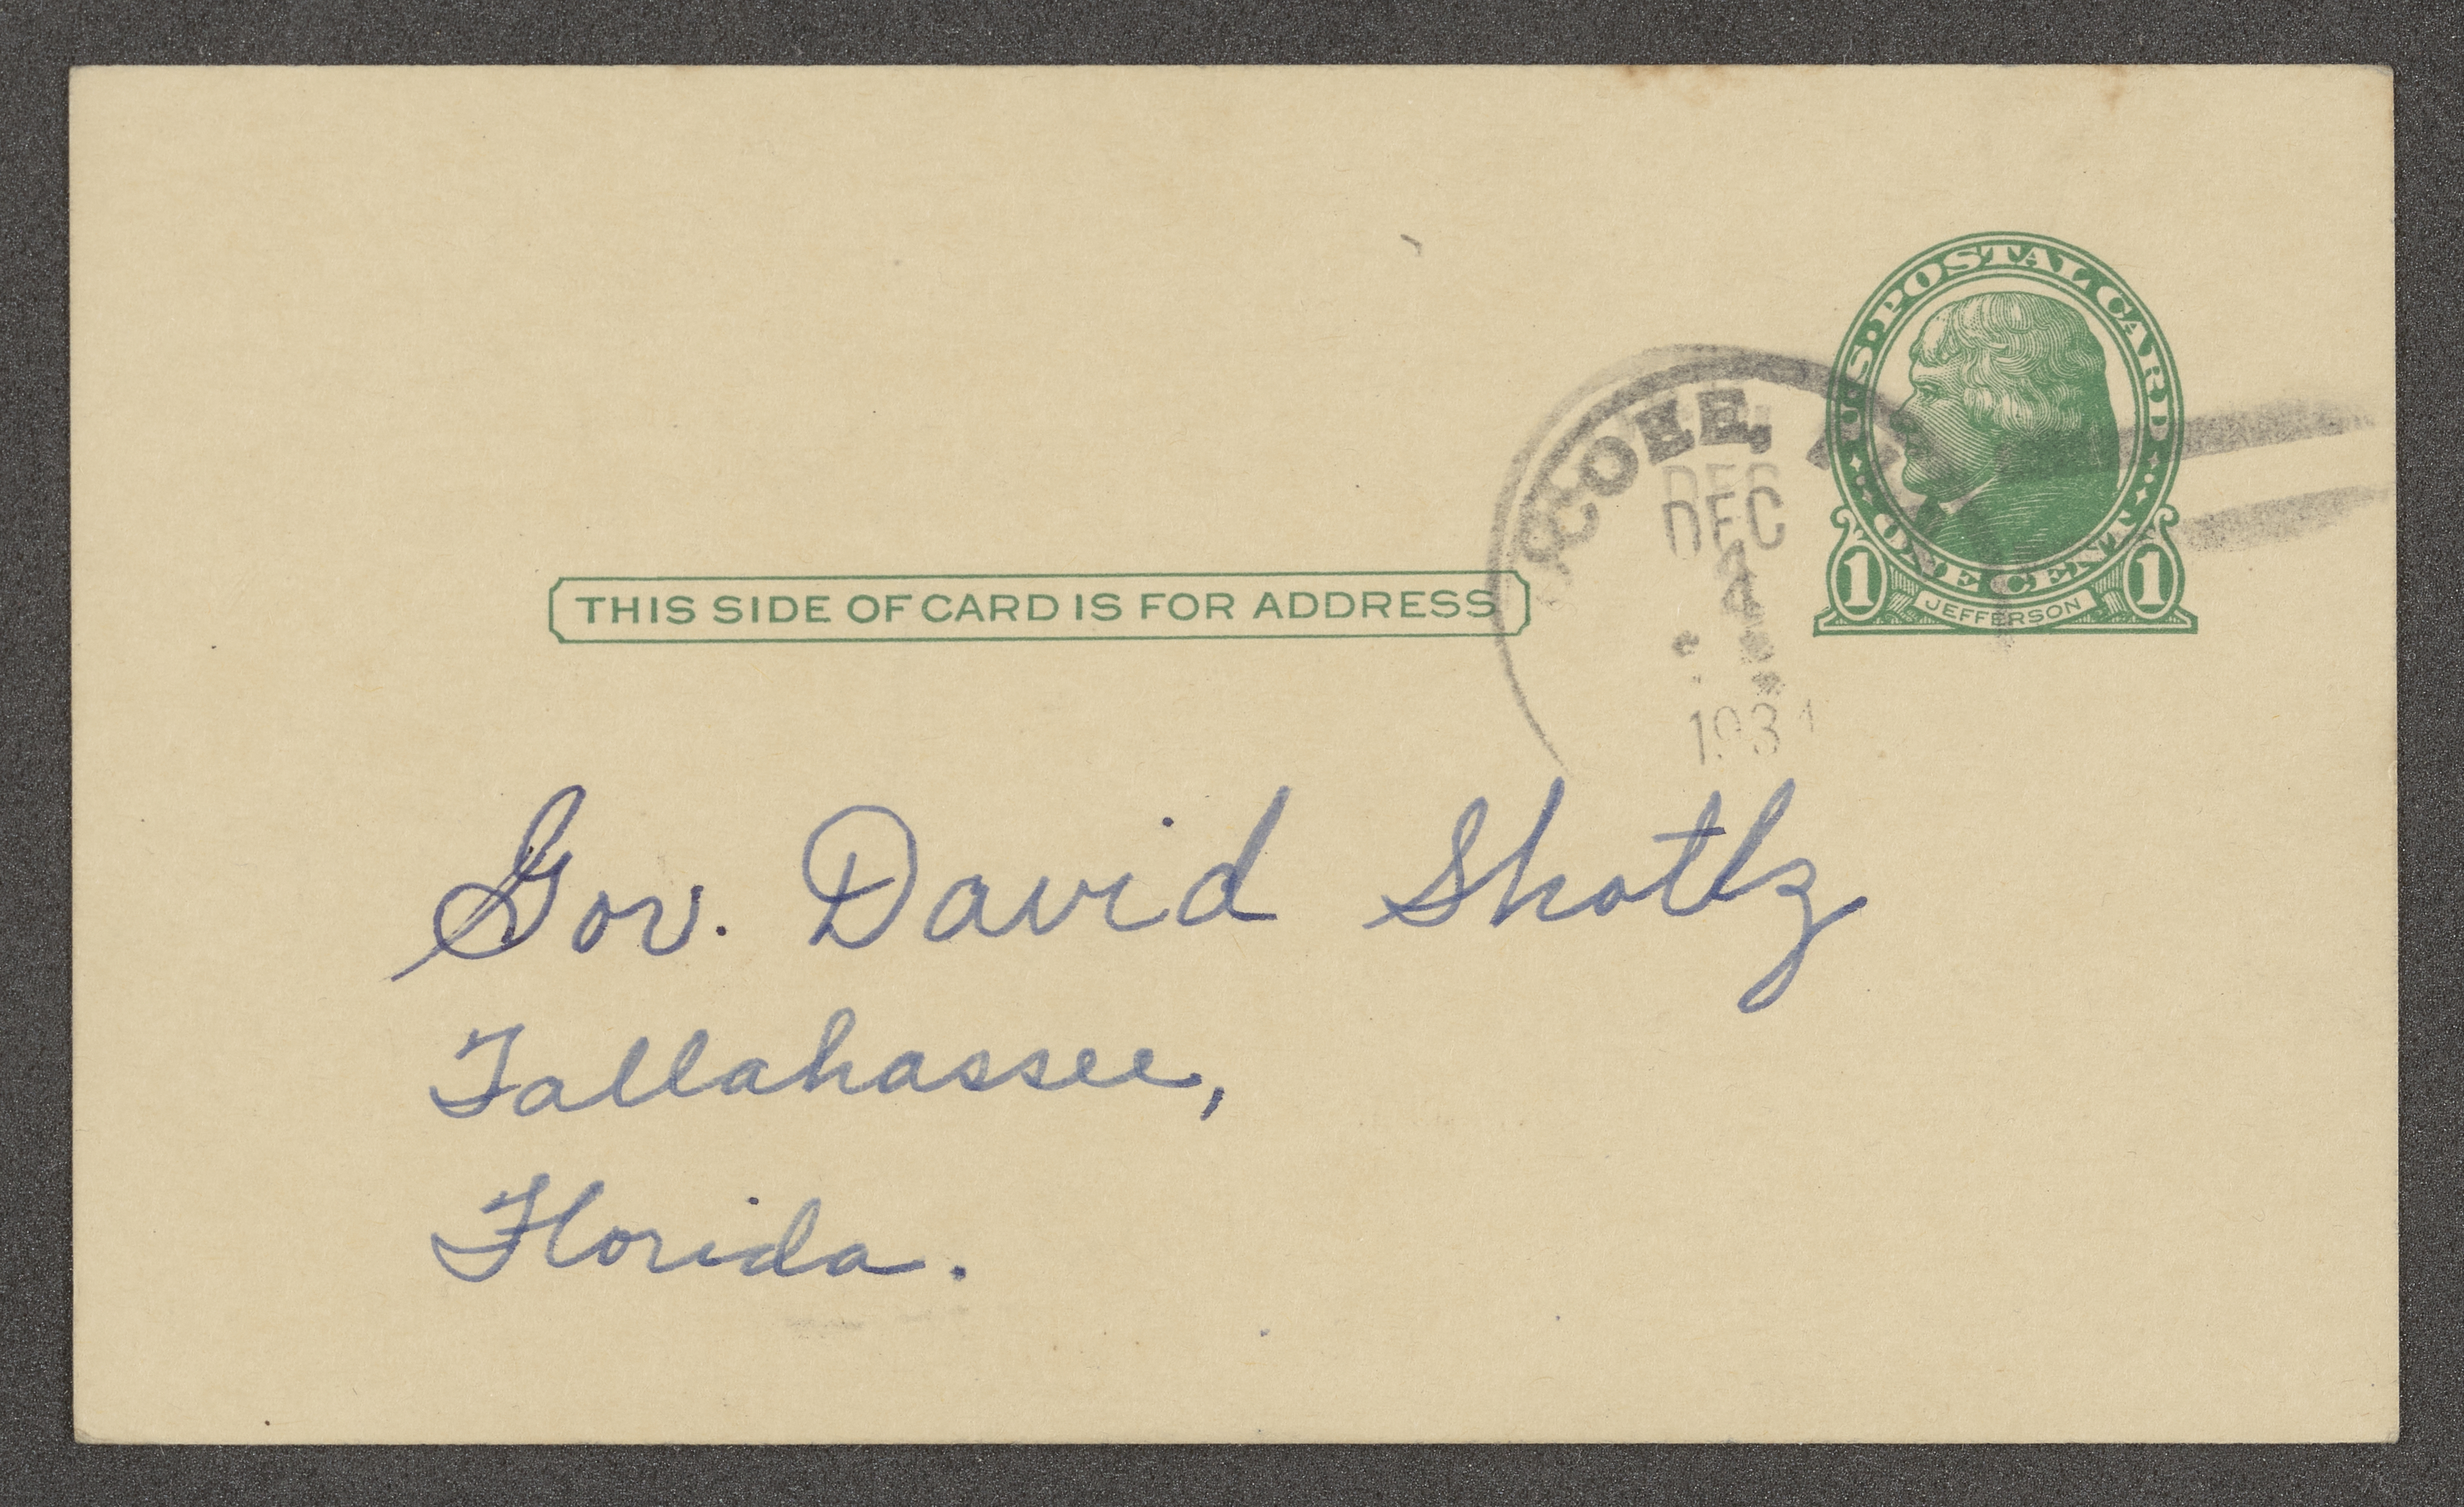 U.S. POSTAL CARD
ONE CENT
1 JEFFERSON 1
DEC
1934
THIS SIDE OF CARD IS FOR ADDRESS
Gov. David Shotlz
Tallahassee,
Florida.